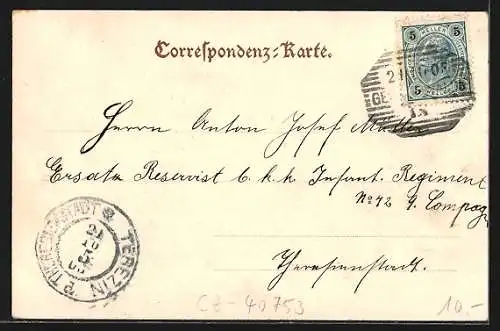 Correspondenz-Karte.
5 HELLER 5
5 5
Herrn Anton Josef Müller
Ersatz Reservist b. k. k Infant. Regiment
No 42 9. Compag
Theresienstadt.
THERESIENSTADT
TEREZIN
21
10
5
CZ-40753
10.-